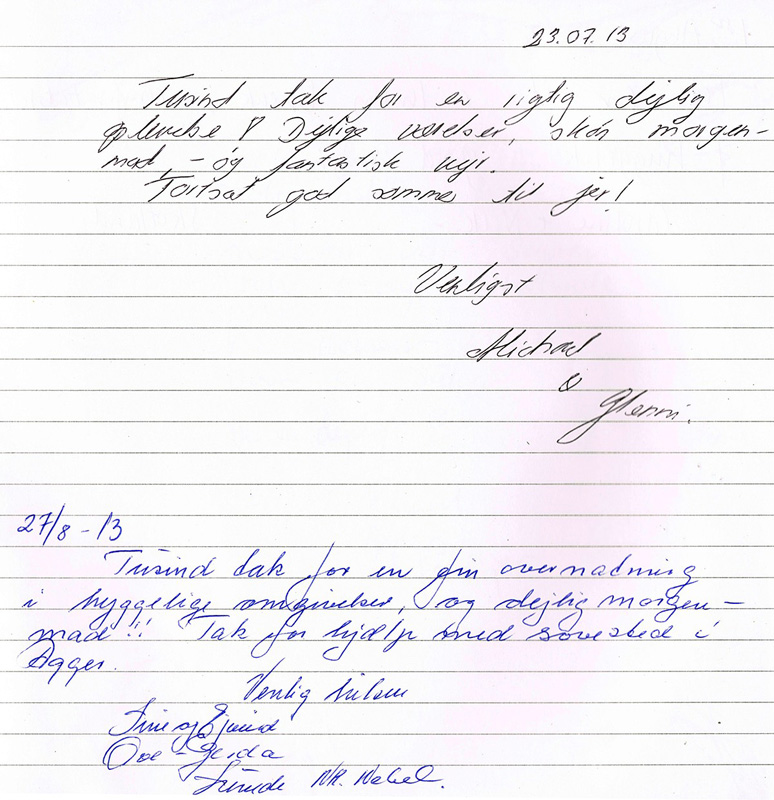 23.07.13
Tusind tak for en rigtig dejlig
oplevelse! Dejlige værelser, skøn morgen-
mad, - og fantastisk vejr.
Fortsat god sommer til jer!
Venligst
Michael
&
Glenni.
27/8-13
Tusind tak for en fin overnatning
i hyggelige omgivelser, og dejlig morgen-
mad!! Tak for hjælp med sovested i
Agger.
Venlig hilsen
og Ejvind
Ove - Gerda
Nr. Nebel.